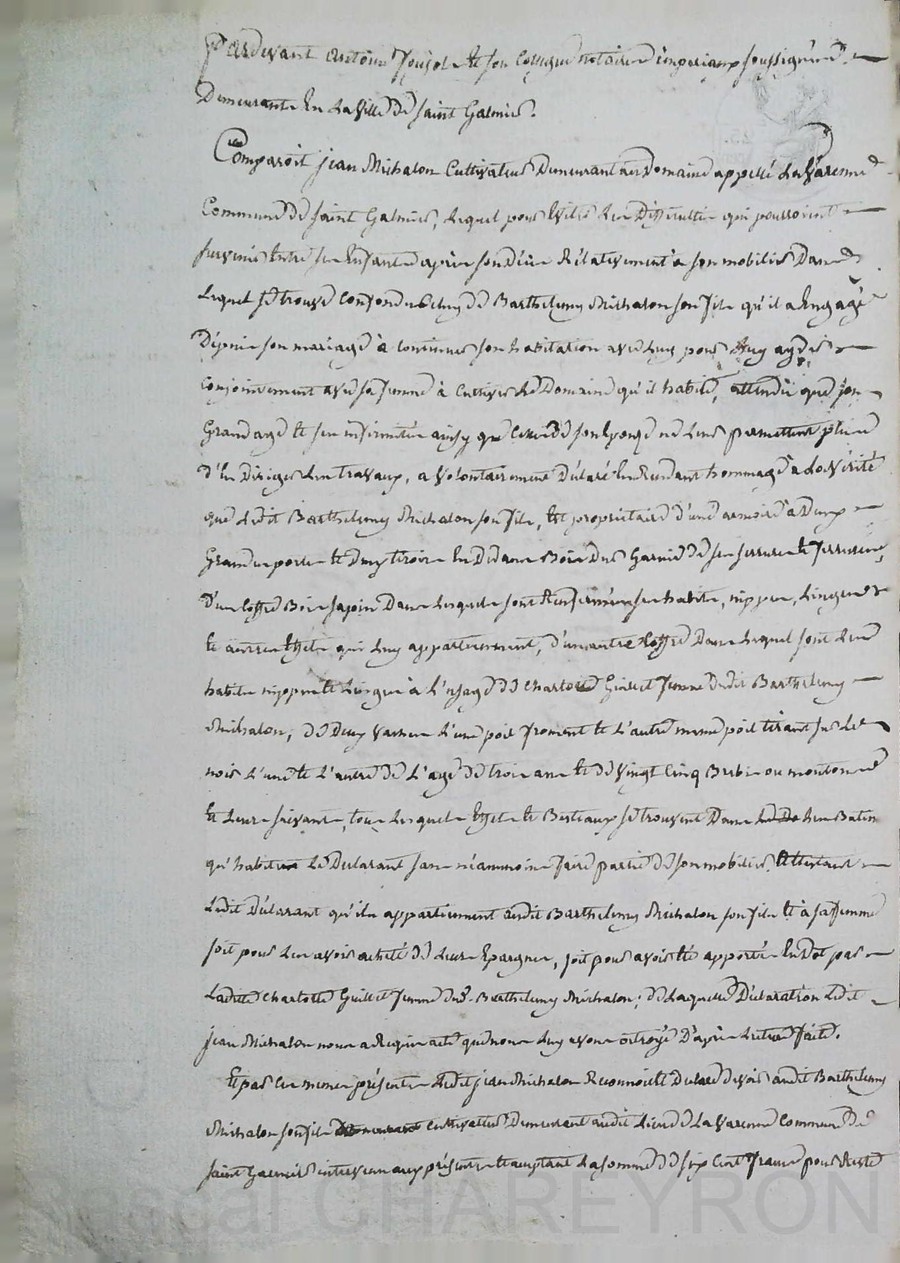 Pardevant Antoine Joujole et son collegue notaires imperiaux soussignés
Demeurants en la ville de saint Galmier.
Comparoit jean Michalon Cultivateur Demeurant au Domaine appellé La Varenne
Commune de saint Galmier, Lequel pour Eviter Les Difficultés qui pourroient
survenir Entre ses Enfants après son décès Rélativement à son mobilier Dans
Lequel se trouve Confondu Celuy de Barthelemy Michalon son fils qu'il a Engagé
Dépuis son mariage à continuer son habitation avec luy pour Luy ayder
conjointement avec sa femme à Cultiver Le Domaine qu'il habite, attendu que son
Grand age et ses infirmités ainsy que celles de son Epouse ne Leurs permettent plus
d'En Diriger Les travaux, a Volontairement Déclaré En Rendant hommage à La Vérité
que Ledit Barthelemy Michalon son fils, Est propriétaire d'une armoire à Deux
Grandes portes et Deux tiroirs En Dedans Bois Dur Garnie de ses serrures et ferrures,
d'un Coffre Bois sapin Dans Lesquels sont Renfermés ses habits, nippes, Linges
et autres Effets qui Luy appartiennent, d'un autre Coffre Dans Lequel sont Les
habits nippes et Linges à L'usage de Charlotte Guillet femme dudit Barthelemy
Michalon, de Deux Vaches L'une poil froment et L'autre meme poil tirant sur Le
noir L'une et L'autre de L'age de trois ans et de vingt Cinq Brebis ou moutons
et Leurs suivants, tous Lesquels Effets et Bestiaux se trouvent Dans Les Batim
qu'habite Le Déclarant sans néanmoins faire partie de son mobilier, Attestant
Ledit Déclarant qu'ils appartiennent audit Barthelemy Michalon son fils et à sa femme
soit pour Les avoir acheté de Leurs Epargnes, soit pour avoir été apportés En Dot par
Ladite Charlotte Guillet femme dud. Barthelemy Michalon; de Laquelle Déclaration Ledit
jean Michalon nous a Requis acte que nous Luy avons octroyé D'après Lecture faite.
Et par Ces memes présentes Ledit jean Michalon Reconnoit et Déclare devoir audit Barthelemy
Michalon son fils cultivateur Demeurant audit Lieu de La Varenne Commune de
saint Galmier intervenu aux présentes et acceptant La somme de six Cent francs pour Reste
Pascal CHAREYRON